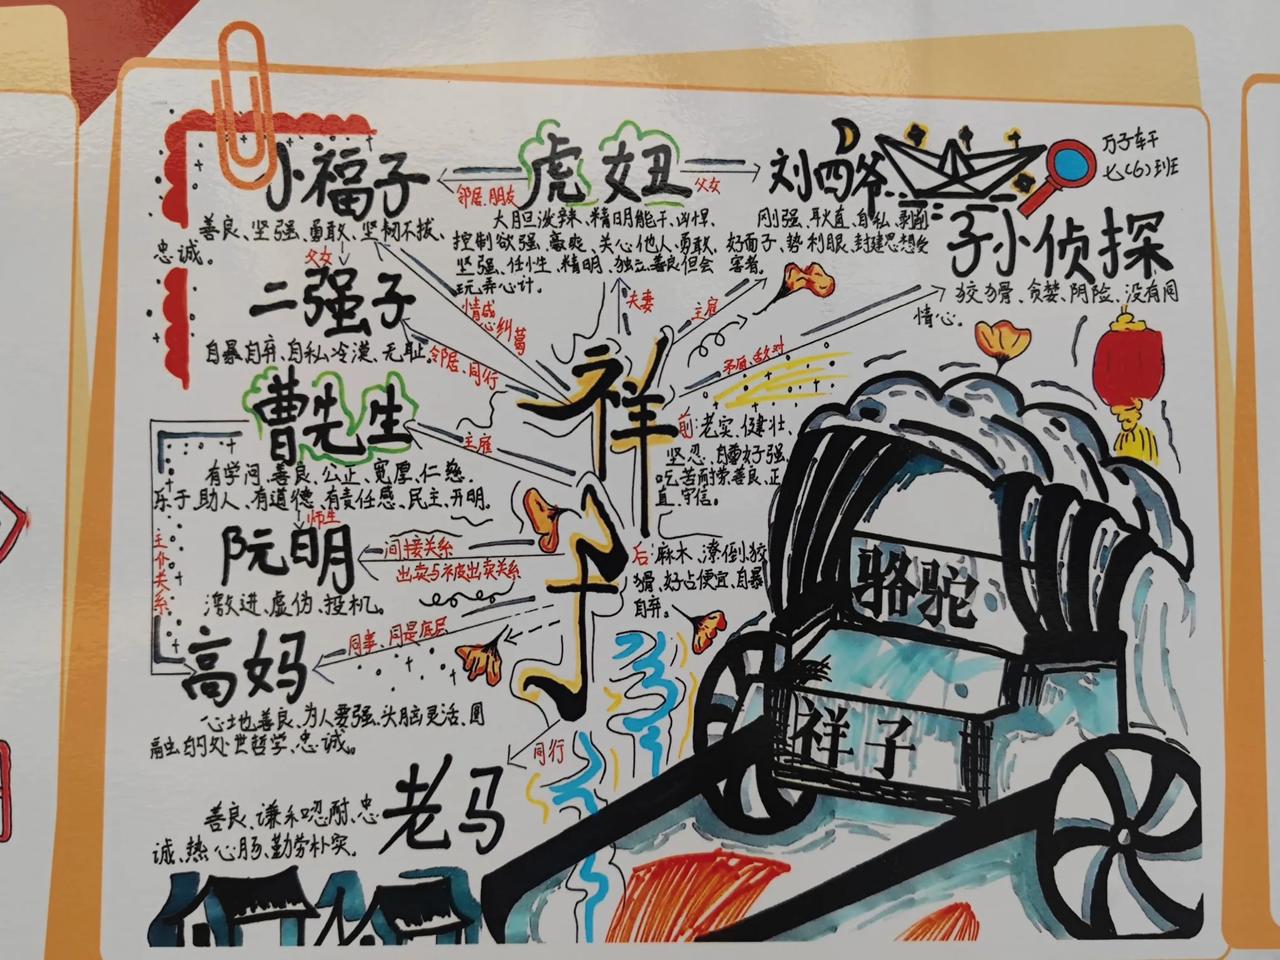 小福子
善良、坚强、勇敢、坚韧不拔、
忠诚。
父女
二强子
自暴自弃、自私冷漠、无耻。
邻居、朋友
虎妞
大胆泼辣、精明能干、凶悍、
控制欲强、豪爽、关心他人、勇敢、
坚强、任性、精明、独立善良但会
玩弄心计。
父女
刘四爷
刚强、耿直、自私、剥削
好面子、势利眼、封建思想受
害者。
万子轩
七(6)班
孙小侦探
狡猾、贪婪、阴险、没有同
情心。
情感
心纠葛
邻居、同行
夫妻
主雇
矛盾、敌对
祥子
前:老实、健壮、
坚忍、自尊好强、
吃苦耐劳善良、正
直、守信。
后:麻木、潦倒狡
猾、好占便宜、自暴
自弃。
曹先生
主雇
有学问、善良、公正、宽厚、仁慈、
乐于助人、有道德、有责任感、民主、开明。
师生
阮明
间接关系
出卖与被出卖关系
激进、虚伪、投机。
主仆关系
高妈
同事、同是底层
心地善良、为人要强、头脑灵活、圆
融的处世哲学、忠诚。
同行
老马
善良、谦和忍耐、忠
诚、热心肠、勤劳朴实。
骆驼
祥子